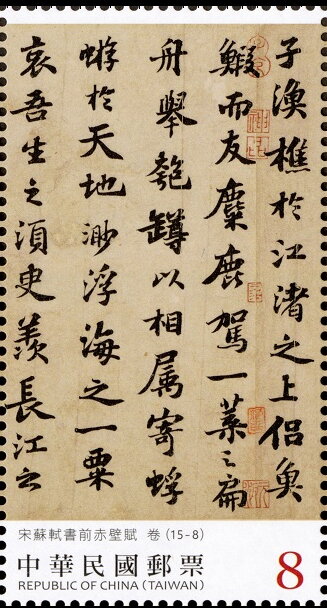 子漁樵於江渚之上侣魚
鰕而友麋鹿駕一葉之扁
舟舉匏罇以相属寄蜉
蝣於天地渺浮海之一粟
哀吾生之須臾羨長江之
宋蘇軾書前赤壁賦 卷 (15-8)
中華民國郵票
REPUBLIC OF CHINA (TAIWAN)
8